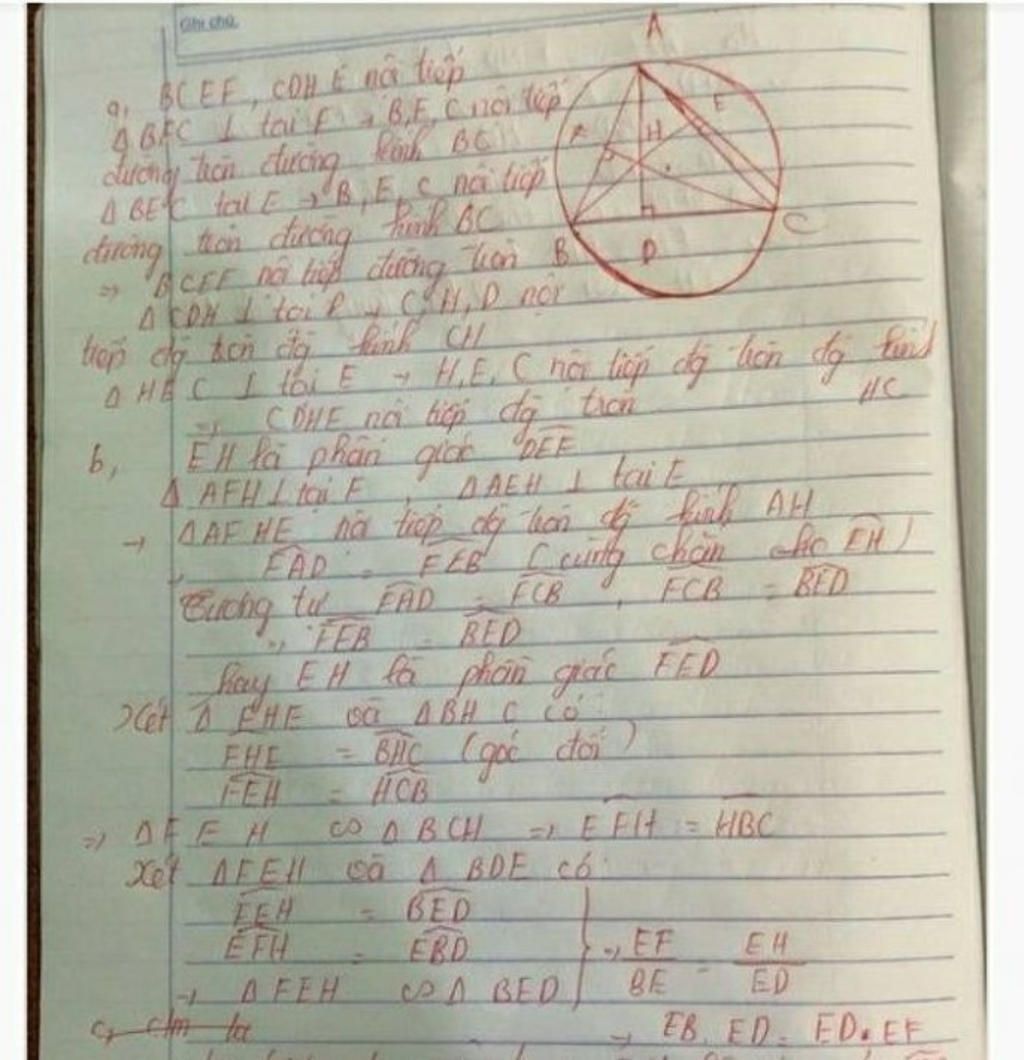 Ghi chú.
A
E
F
H
B
D
C
a, BCEF, CDHE nội tiếp
Δ BFC ⊥ tại F → B, F, C nội tiếp
đường tròn đường kính BC
Δ BEC tại E → B, E, C nội tiếp
đường tròn đường kính BC
=> BCEF nội tiếp đường tròn
Δ CDH ⊥ tại D → C, H, D nội
tiếp đg tròn đg kính CH
Δ HEC ⊥ tại E → H, E, C nội tiếp đg tròn đg kính
HC
=> CDHE nội tiếp đg tròn
b, EH là phân giác DEF
Δ AFH ⊥ tại F , Δ AEH ⊥ tại E
→ Δ AFHE nội tiếp đg tròn đg kính AH
FAD = FEB (cùng chắn cho FH)
Tương tự FAD = FCB , FCB = BED
=> FEB = BED
hay EH là phân giác FED
Xét Δ FHE và Δ BHC có
FHE = BHC (góc đối)
FEH = HCB
=> Δ FEH ∽ Δ BCH => EFH = HBC
Xét Δ FEH và Δ BDE có
FEH = BED
EFH = EBD
→ Δ FEH ∽ Δ BED } → EF/BE = EH/ED
c, c/m
→ EB. ED = ED. EF